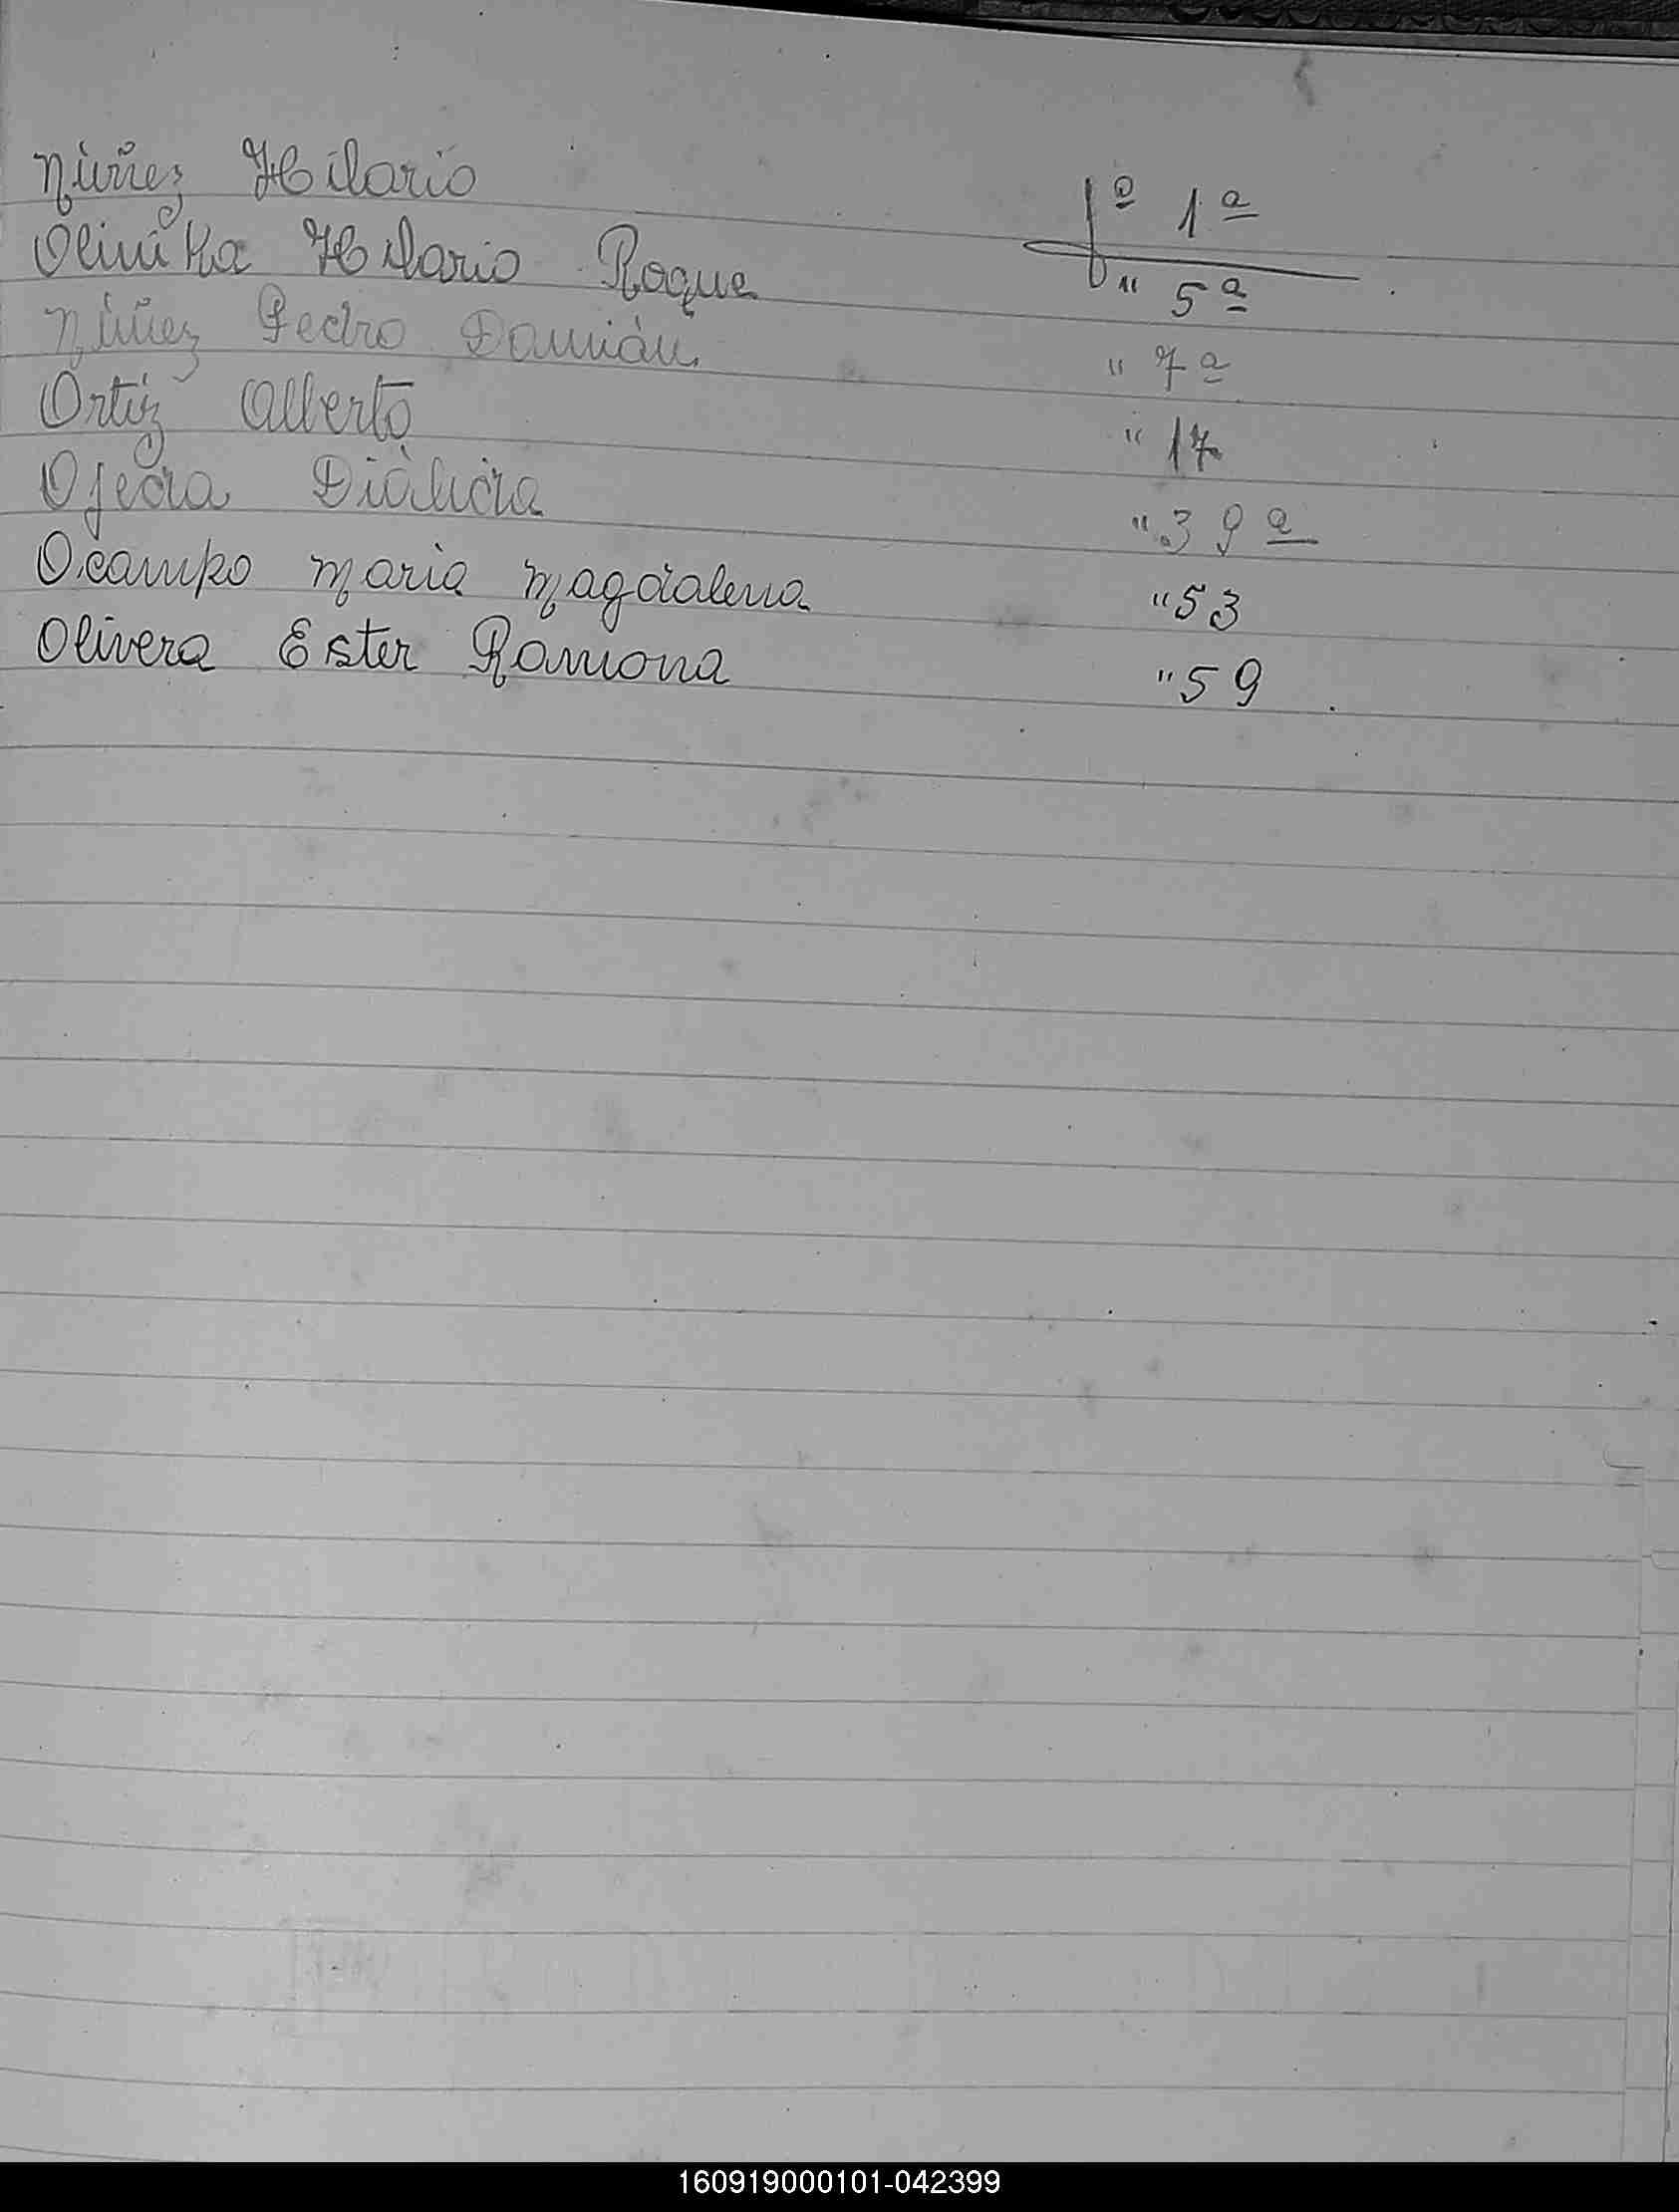 Núñez Hilario fº 1ª
Olinika Hilario Roque " 5ª
Núñez Pedro Damián " 7ª
Ortíz Alberto " 17
Ojeda " 39ª
Ocampo Maria Magdalena " 53
Olivera Ester Ramona " 59
160919000101-042399